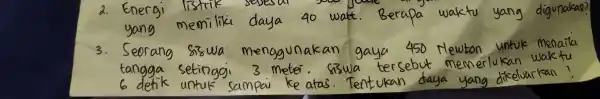 2. Energi listrik sebesar
yang memiliki daya 40 watt. Berapa waktu yang digunakan?
3. Seorang siswa menggunakan gaya 450 Newton untuk menaiki
tangga setinggi 3 meter. siswa tersebut memerlukan waktu
6 detik untuk sampai ke atas. Tentukan daya yang dikeluarkan!